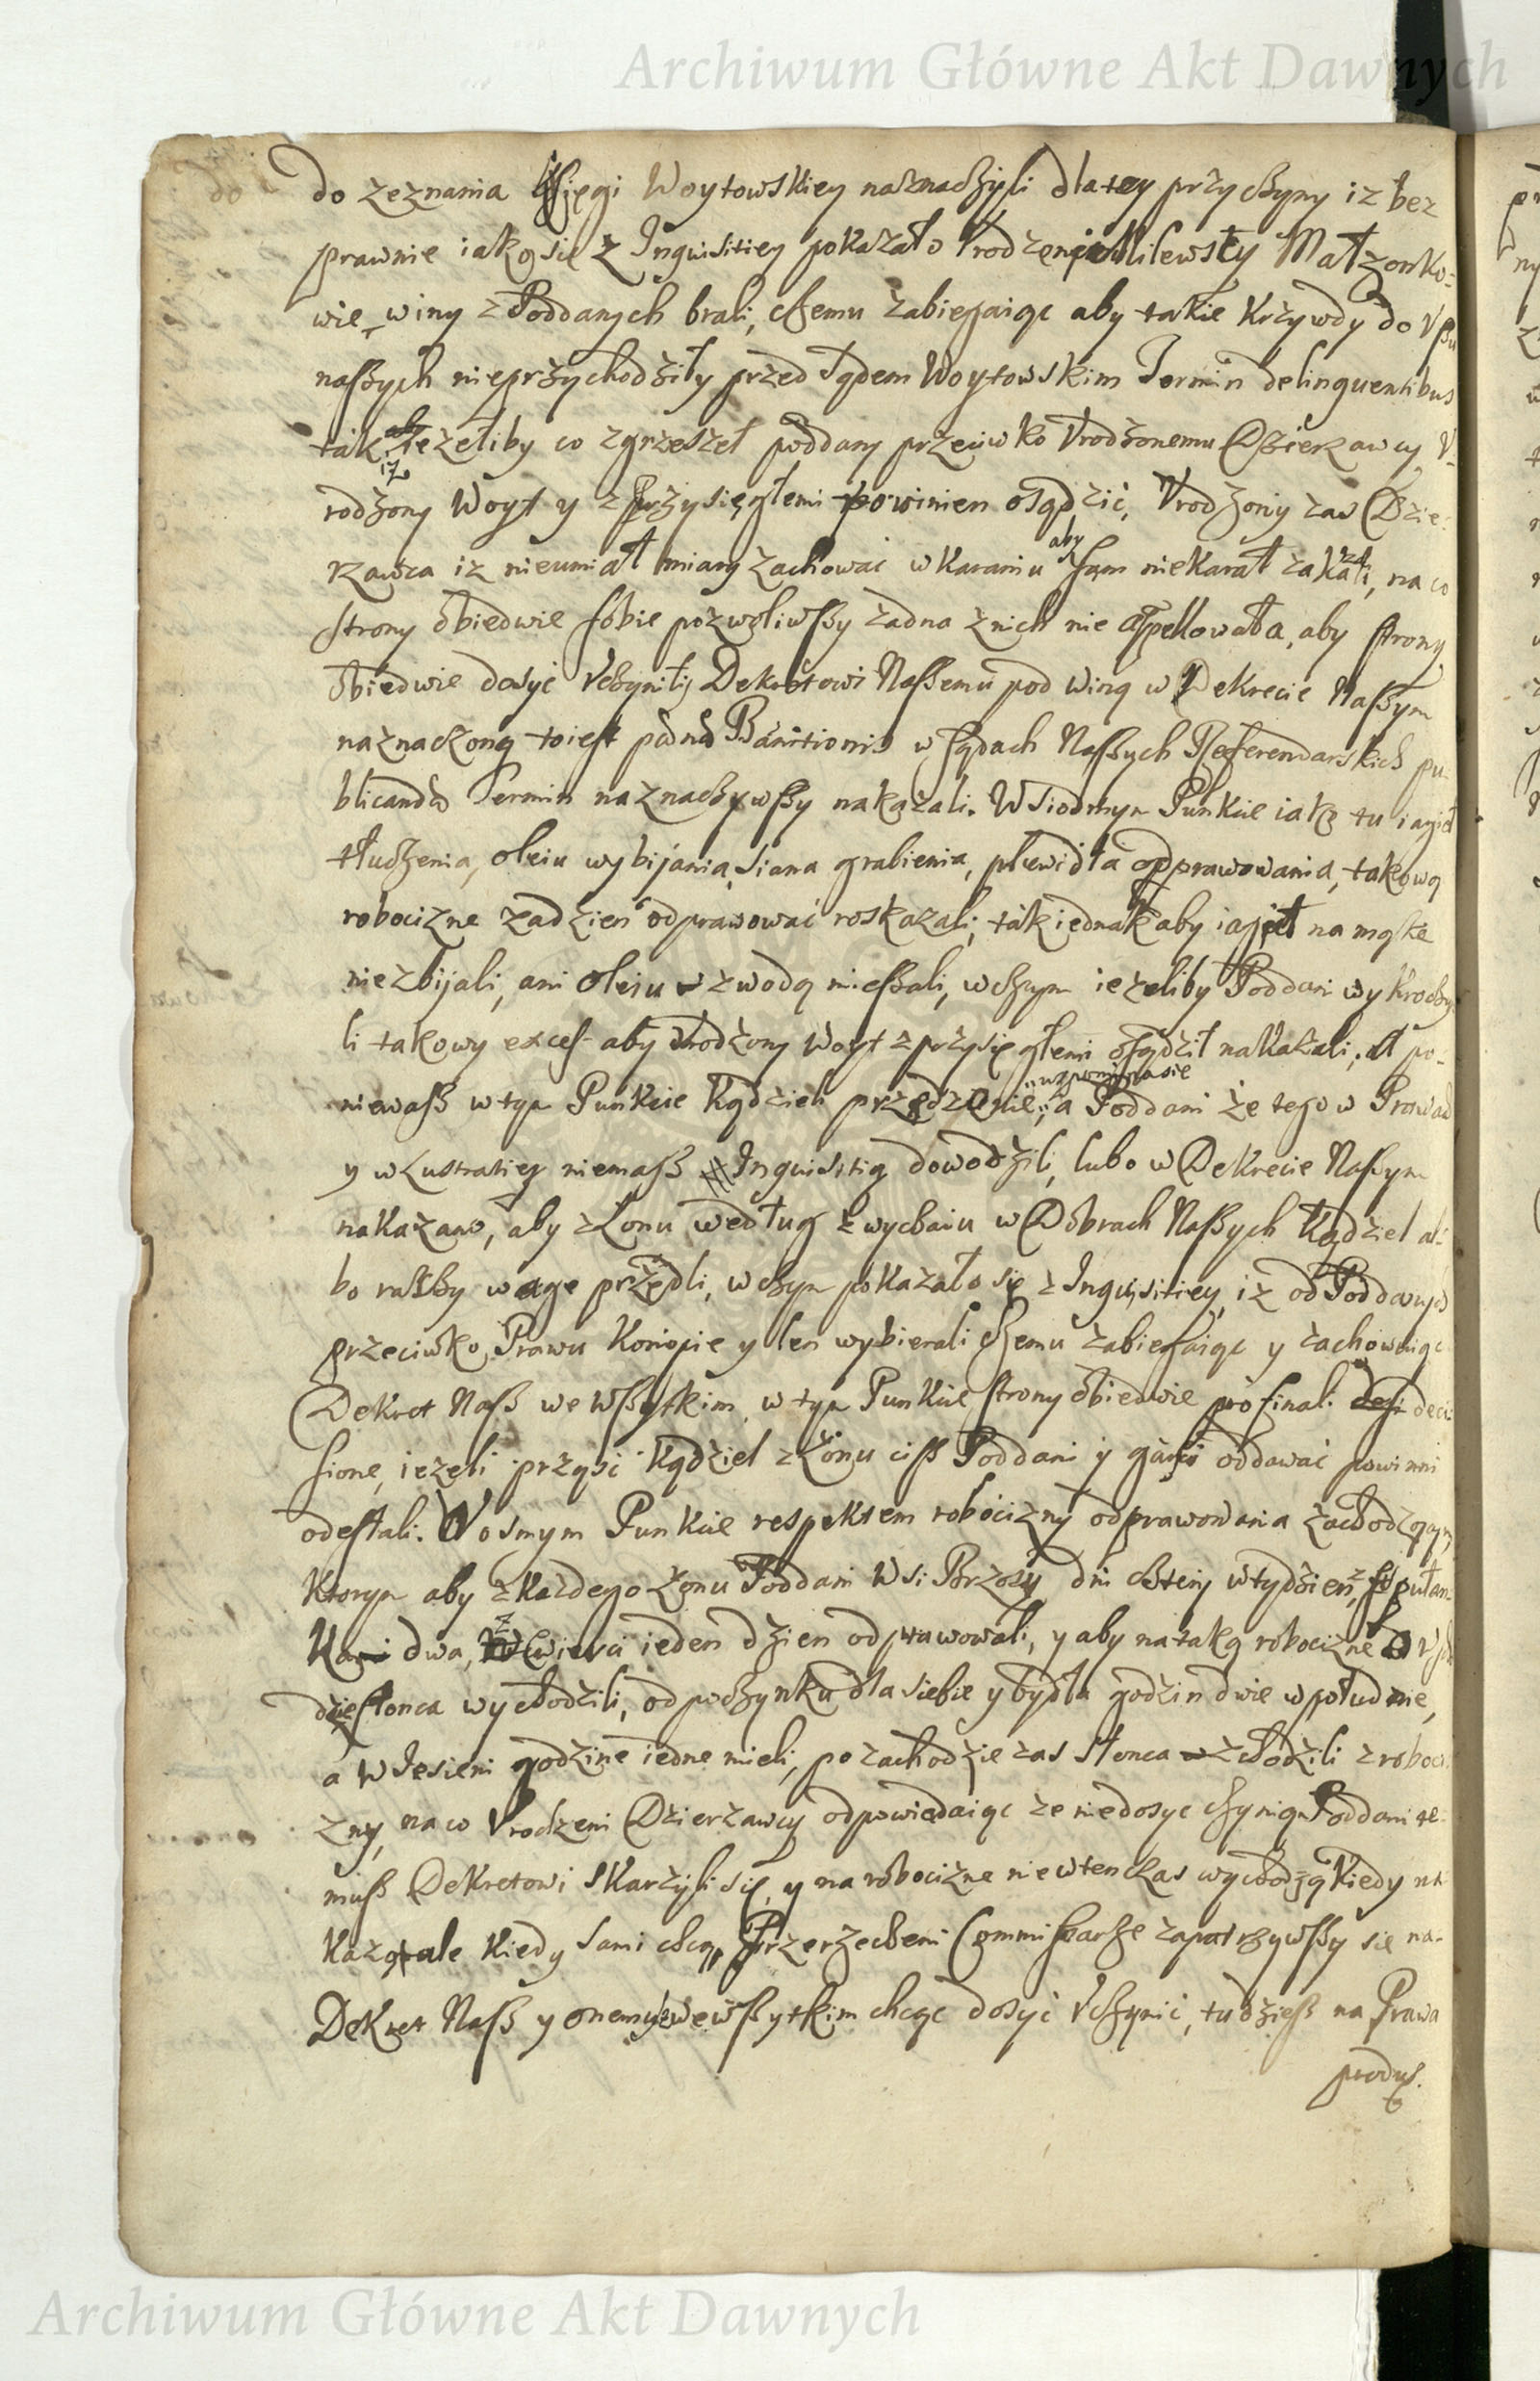 Archiwum Główne Akt Dawnych
do zeznania Xsięgi Woytowskiey naznaczyli dla tey przyczyny iz bez
prawnie iako sie z Inquisitiey pokazało Vrodzeni Milewscy Małzonko-
wie winy z Poddanych brali, czemu zabiegaiąc aby takie krzywdy do Vszu
naszych nieprzychodziły przed Sądem Woytowskim Termin delinquentibus
tak iz iezeliby co zgrzeszeł poddany przeciwko Vrodzonemu Dzierzawcy V-
rodzony Woyt y z Przysięgłemi powinien osądzić, Vrodzony zas Dzie-
rzawca iz nieumiał miary zachować w karaniu aby sam niekarał zakazali, na co
strony obiedwie sobie pozwoliwszy zadna z nich nie appellowała, aby strony
obiedwie dosyć Vczyniły Dekretowi Naszemu pod winą w Dekrecie Naszym
naznaczoną to iest pœna Banitionis w sądach Naszych Referendarskich pu-
blicanda Termin naznaczywszy nakazali. W Siodmym Punkcie iako tu iagieł
tłuczenia, oleiu wybijania, siana grabienia, plewidła odprawowania, takową
robocizne za dzień odprawować roskazali, tak iednak aby iagieł na mąke
niezbijali, ani oleiu z wodą mieszali, w czym iezeliby Poddani wykroczy
li takowy exces aby Vrodzony Woyt z przysięgłemi osądził nakazali. A po-
niewasz w tym Punkcie kądzieli przędzenie wspomina sie, a Poddani że tego w Prowad
y w Lustratiey niemasz Inquisitią dowodzili, lubo w Dekrecie Naszym
nakazano, aby z Łonu według zwyczaiu w Dobrach Naszych kądziel al-
bo raszby wage przędli, w czym pokazało się z Inquisitiey, iz od Poddanych
przeciwko Prawu konopie y len wybierali czemu zabiegaiąc y zachowuiąc
Dekret Nasz we wszytkim, w tym Punkcie strony obiedwie pro finali deci
sione, iezeli prząść kądziel z Łonu cisz Poddani y oddawać powinni
odesłali. W osmym Punkcie respektem robocizny odprawowania zachodzącym
ktorym aby z kazdego Łonu Poddani Wsi Brzozy dni cztery w tydzień, z pułan
ka dwa, z Cwierci ieden dzien odprawowali, y aby na taką robocizne o Vscho
dzie słonca wychodzili, odpoczynku dla siebie y bydła godzin dwie w południe,
a w Iesieni godzine iedne mieli, po zachodzie zas słonca zchodzili z roboci
zny, na co Vrodzeni Dzierzawcy odpowiedaiąc ze niedosyc czynią Poddani te-
musz Dekretowi skarzyli się, y na robocizne nie w ten czas wychodzą kiedy im
kazą ale kiedy sami chcą, Przerzeczeni Commissarze zapatrzywszy sie na-
Dekret Nasz y onemu we wszytkim chcąc dosyć Vczynić, tudziesz na Prawa
produs.
Archiwum Główne Akt Dawnych